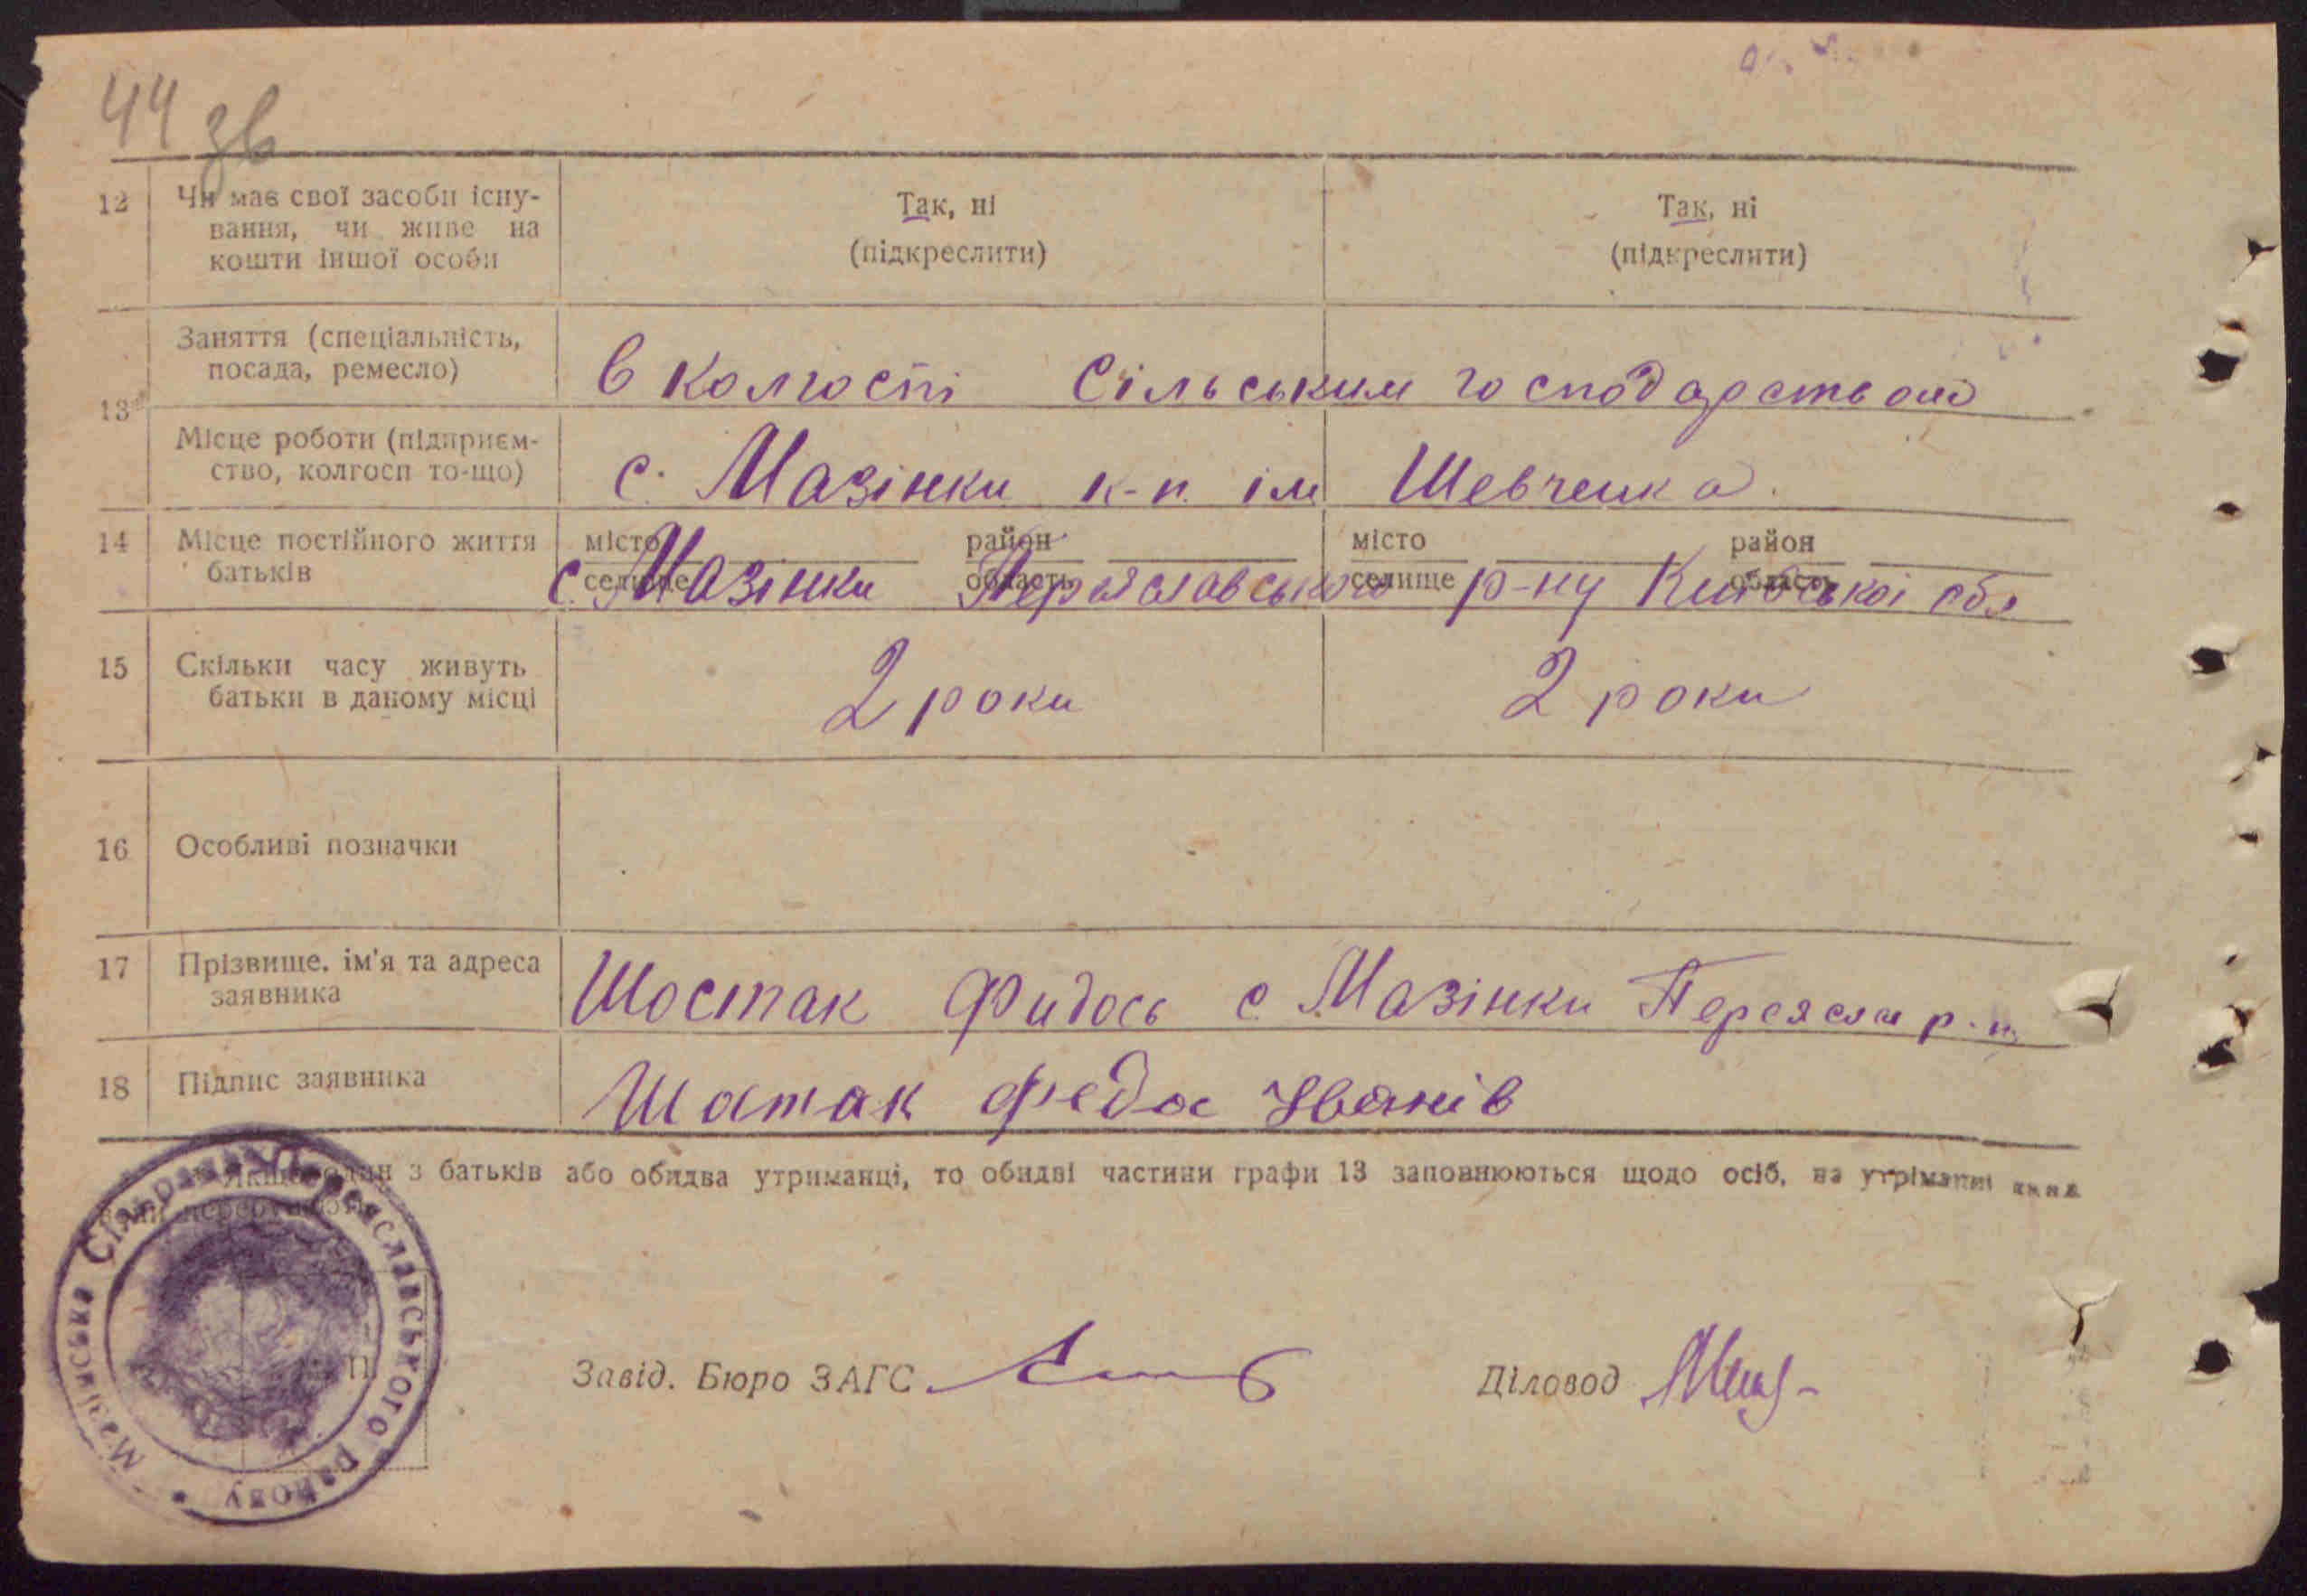 44 зв
12 Чи має свої засоби існу- Так, ні Так, ні
вання, чи живе на (підкреслити) (підкреслити)
кошти іншої особи
Заняття (спеціальність,
посада, ремесло) в колгоспі Сільським господарством
13*
Місце роботи (підприєм-
ство, колгосп то-що) с. Мазінки к-п. ім Шевченка.
14 Місце постійного життя місто район місто район
батьків селище область селище область
с. Мазінки Переяславського р-ну Київської обл
15 Скільки часу живуть 2 роки 2 роки
батьки в даному місці
16 Особливі позначки
17 Прізвище, ім'я та адреса
заявника Шостак Фидось с Мазінки Переяслав р-н
18 Підпис заявника Шостак Федос Іванів
Якщо один з батьків або обидва утриманці, то обидві частини графи 13 заповнюються щодо осіб, на утриманні яких
вони перебувають.
Мазінська Сільрада Переяславського району
М. П.
Завід. Бюро ЗАГС Діловод